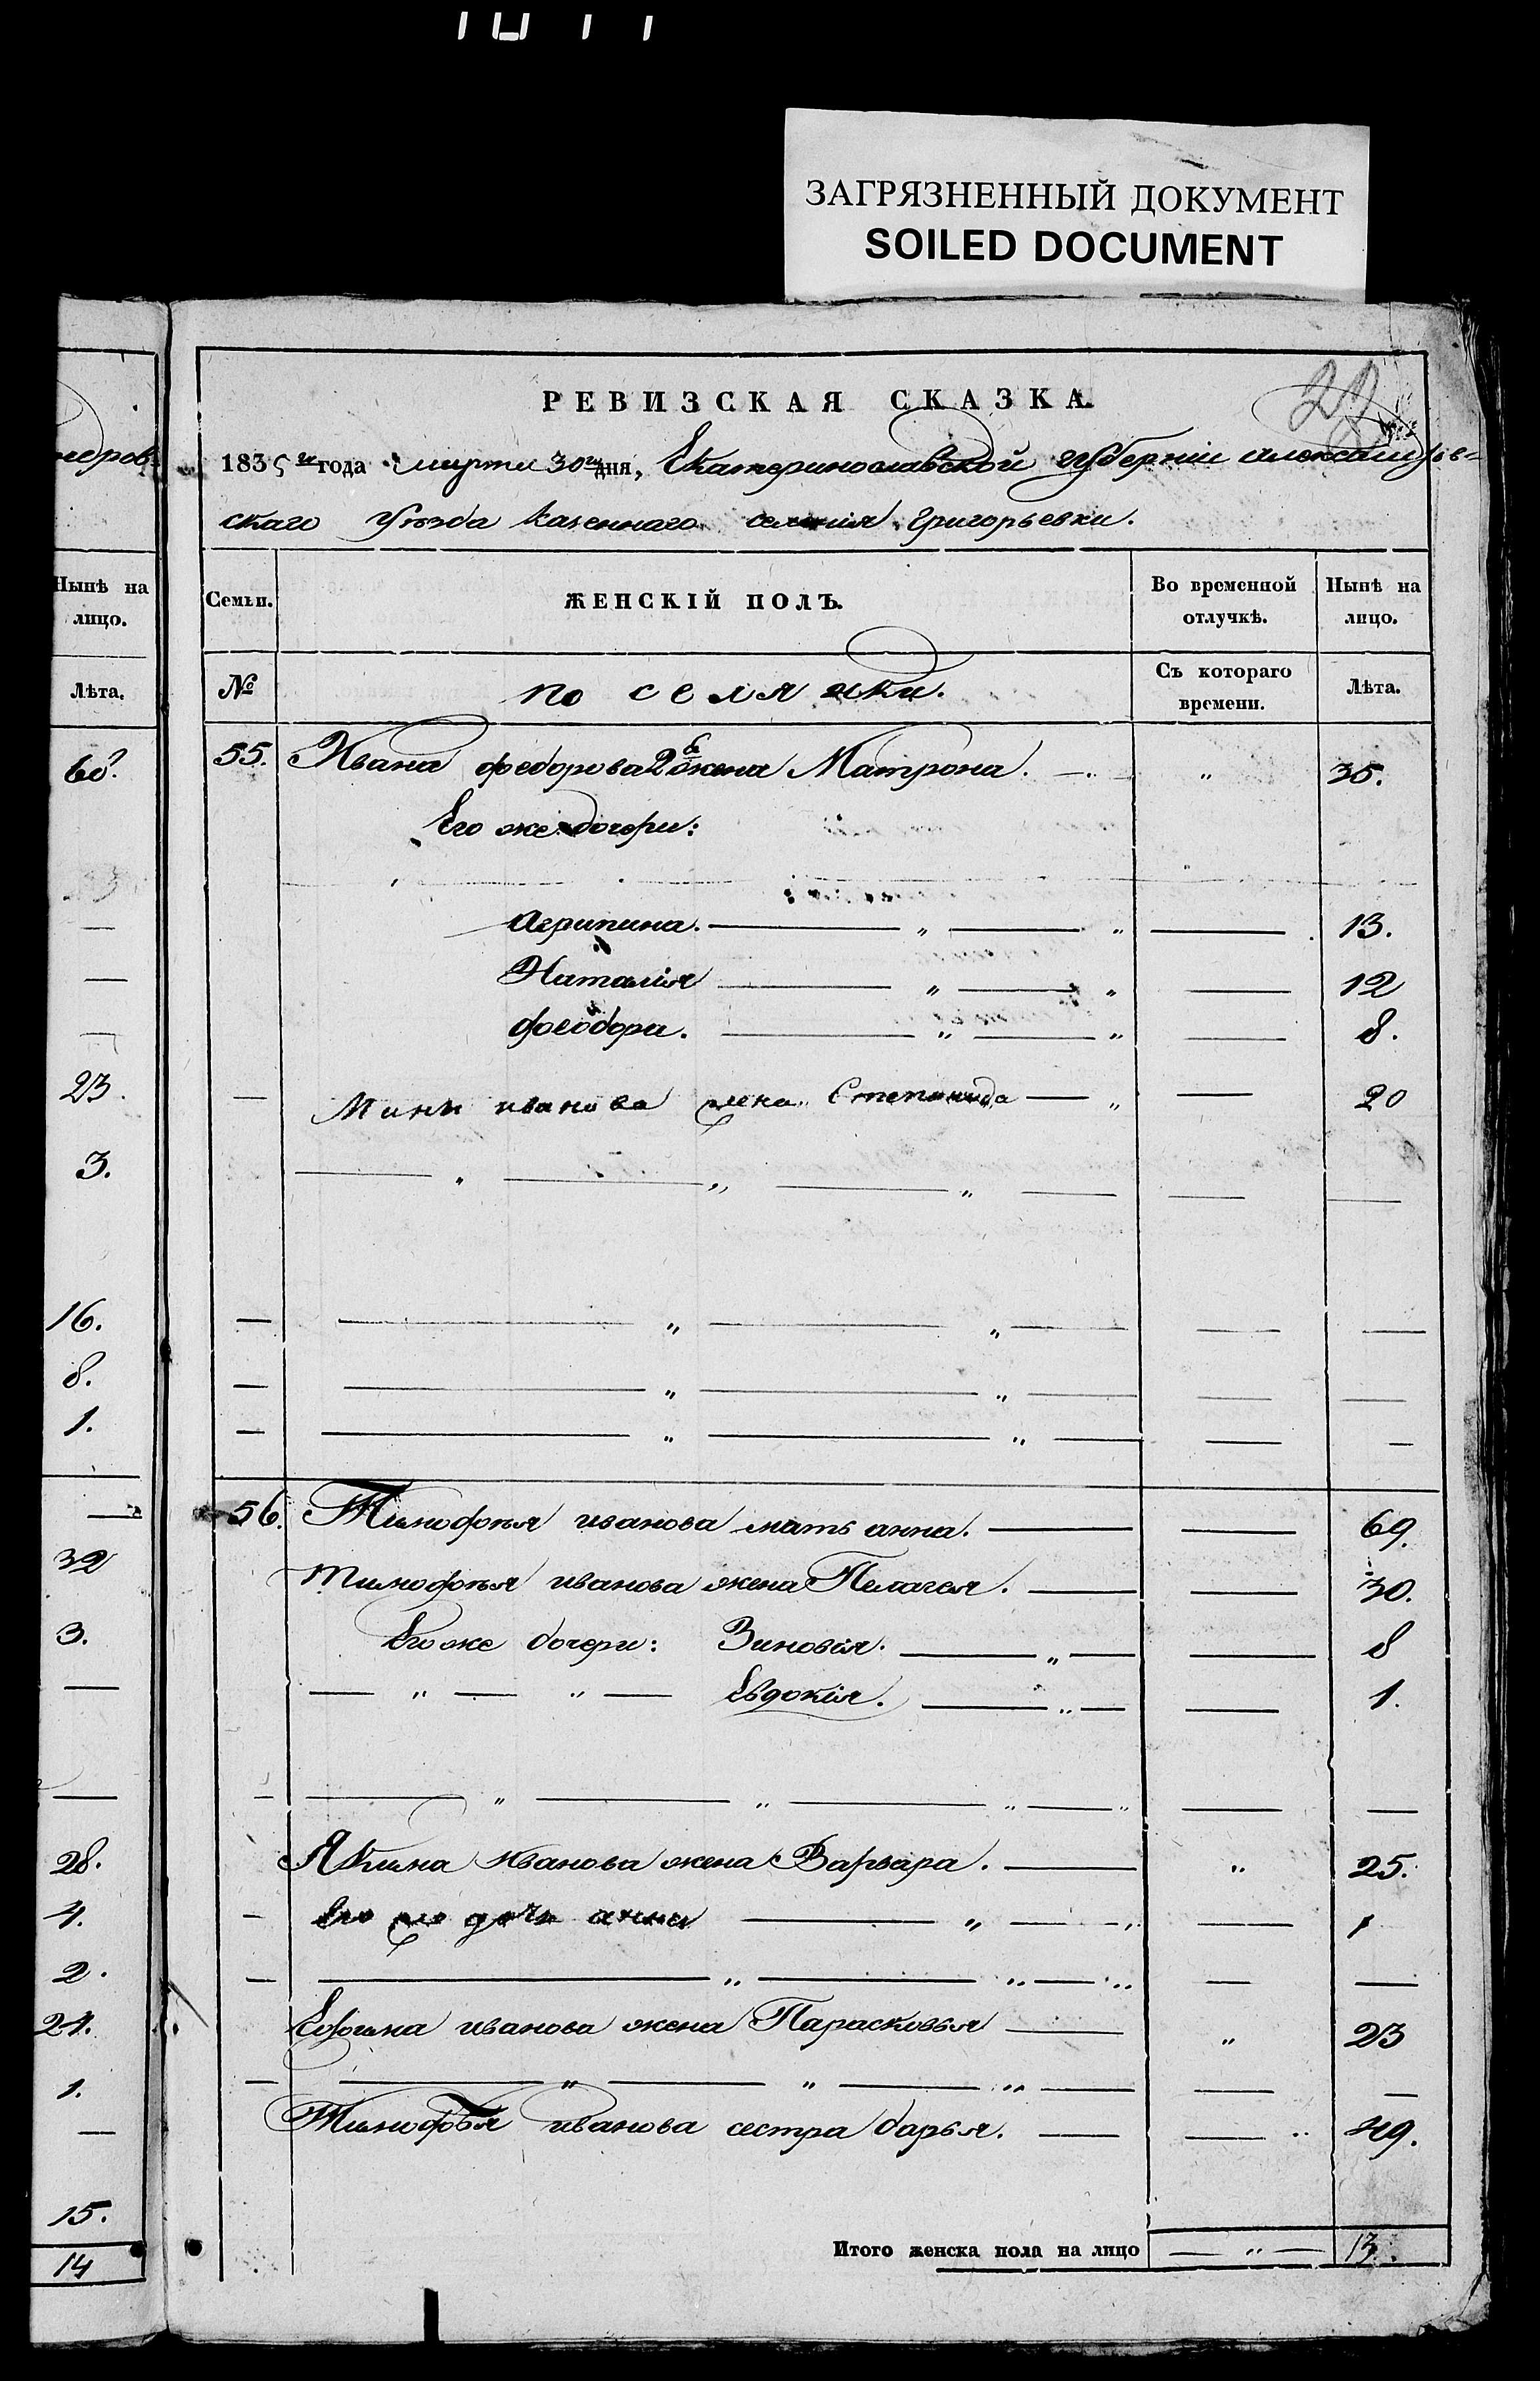 ЗАГРЯЗНЕННЫЙ ДОКУМЕНТ
SOILED DOCUMENT
РЕВИЗСКАЯ СКАЗКА.
1835 го года марта 30 го дня, Екатеринославской губернiи александров=
скаго уѣзда казеннаго селенiя григорьевки.
Нынѣ на лицо.
Лѣта.
60.
23.
3.
16.
8.
1.
32
3.
28.
4.
2.
24.
1.
15.
14
Семьи. ЖЕНСКIЙ ПОЛЪ. Во временной отлучкѣ. Нынѣ на лицо.
№ поселянки. Съ котораго времени. Лѣта.
55. Ивана федорова 2я жена Матрона. — „ 35.
Его же дочери:
агрипина. — „ — „ — 13.
Наталiя — „ — „ — 12
феодора. — „ — „ — 8.
— Мины иванова жена Степанида — „ — 20
— „ — „ — „ — — —
— — „ — „ — — —
— — „ — „ — — —
— — „ — „ — — —
56. Тимофѣя иванова мать анна. — — 69.
тимофѣя иванова жена Пелагея. — — 30.
Его же дочери: Зиновiя. — „ — — 8
— „ — „ — Евдокiя. — „ — — 1.
— — „ — „ — „ — „ — —
Якима Иванова жена Варвара. — „ 25.
— Его же дочь анна — „ — „ — 1
— — „ — „ — „ — —
Ефима иванова жена Парасковья — „ 23
— — „ — „ — „ — — —
Тимофѣя иванова сестра дарья. — — „ 49.
Итого женска пола на лицо — „ — 13.